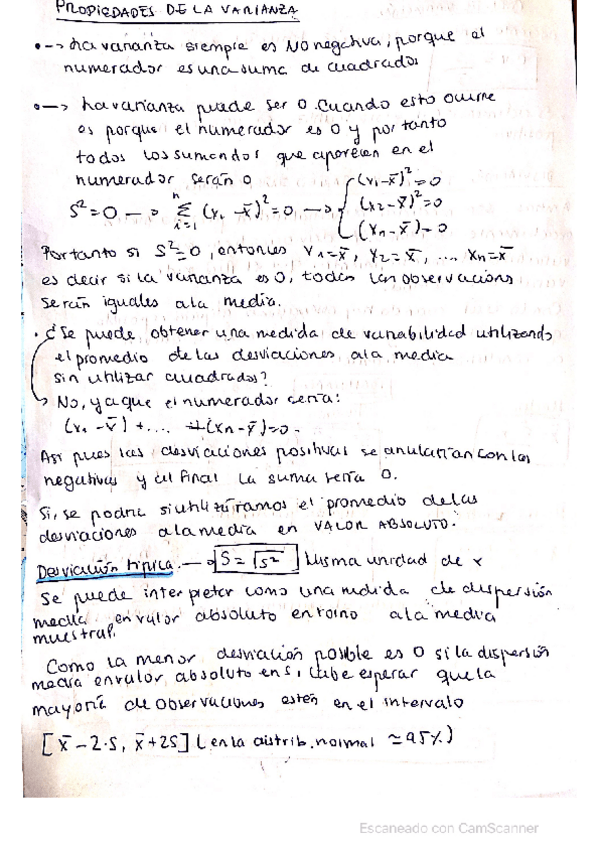 PROPIEDADES DE LA VARIANZA
• --> La varianza siempre es NO negativa, porque el
numerador es una suma de cuadrados
• --> La varianza puede ser 0. Cuando esto ocurre
es porque el numerador es 0 y por tanto
todos los sumandos que aparecen en el
numerador serán 0
S²=0 --> Σ(i=1, n) (xᵢ - x̄)²=0 --> { (x₁-x̄)²=0
(x₂-x̄)²=0
(xₙ-x̄)=0
Por tanto si S²=0, entonces x₁=x̄, x₂=x̄, ... xₙ=x̄
es decir si la varianza es 0, todas las observacions
serán iguales a la media.
• ¿Se puede obtener una medida de variabilidad utilizando
el promedio de las desviaciones a la media
sin utilizar cuadrados?
→ No, ya que el numerador sería:
(x₁ - x̄) + .... + (xₙ - x̄)=0.
Asi pues las desviaciones positivas se anularían con las
negativas y al final la suma sería 0.
Si, se podria si utilizáramos el promedio de las
desviaciones a la media en VALOR ABSOLUTO.
Desviación típica. --> S = √S² Misma unidad de x
Se puede interpretar como una medida de dispersión
media en valor absoluto entorno a la media
muestral.
Como la menor desviación posible es 0 si la dispersión
media en valor absoluto en S, cabe esperar que la
mayoría de observaciones estén en el intervalo
[x̄ - 2·S, x̄ + 2S] (en la distrib. normal ≃ 95%)
Escaneado con CamScanner